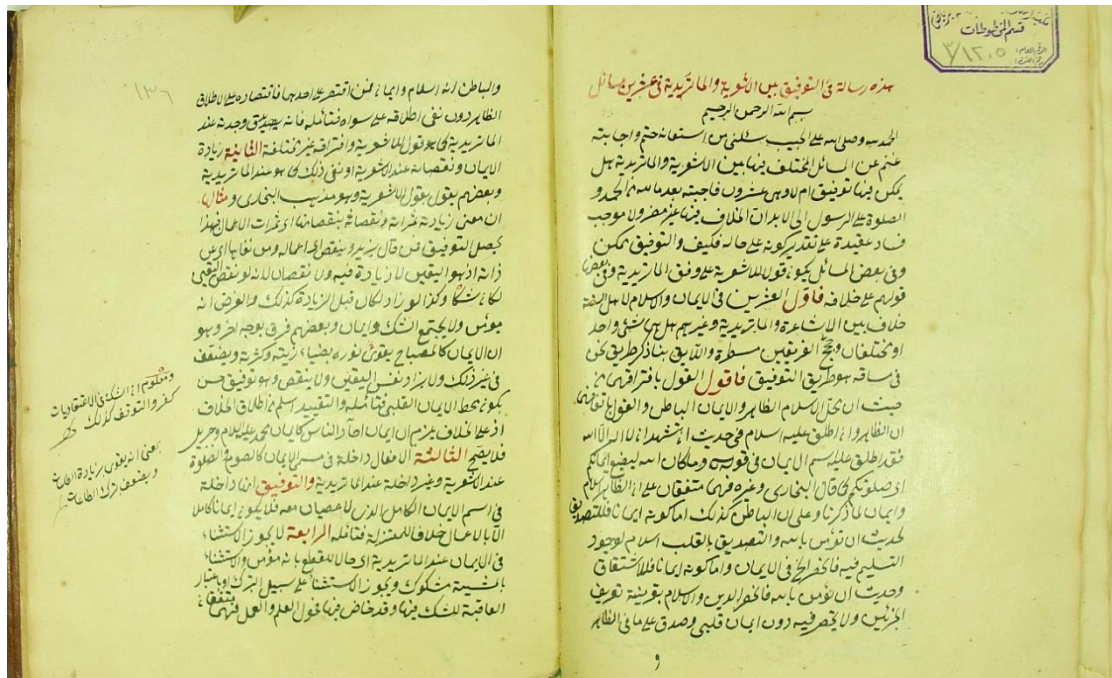 قسم المخطوطات
الرقم العام:
٣/١٢٠٥
هذه رسالة في التوفيق بين الاشعرية والماتريدية في عشرين مسائل
بسم الله الرحمن الرحيم
الحمد لله وصلى الله على الحبيب سئلني من استعانه حتم واجابته
غنم عن المسائل المختلف فيها بين الاشعرية والماتريدية هل
يمكن فيها توفيق ام لا وهي عشرون فاجبته بعد ما لله الحمد و
الصلوة على الرسول الى الابد ان الخلاف فيها غير مضر ولا موجب
فساد عقيدة على تقدير كونه على حاله فكيف والتوفيق ممكن
وفي بعض المسائل يكون قول للاشعرية على وفق الماتريدية وفي بعضها
قولهم على خلافه فاول العشرين في الايمان والاسلام لاهل السنة
خلاف بين الاشاعرة والماتريدية وغيرهم هل هما شئ واحد
او مختلفان وحجج الفريقين مسطرة واللايق بنا ذكر طريق نحن
في مساقه هو طريق التوفيق فاقول القول بافتراقهما من
حيث ان محل الاسلام الظاهر والايمان الباطن والقول باتفاقهما
ان الظاهر وان اطلق عليه اسلام في حديث ان تشهد ان لا اله الا الله
فقد اطلق عليه اسم الايمان في قوله وما كان الله ليضيع ايمانكم
اي صلوتكم كما قال البخاري وغيره فهما متفقان على ان الظاهر اسلام
وايمان لما ذكرنا وعلى ان الباطن كذلك اما كونه ايمانا فللتصديق
لحديث ان تؤمن بالله والتصديق بالقلب اسلام لوجود
التسليم فيه فانحصر الخ في الايمان واما كونه ايمانا فللاشتقاق
وحديث ان تؤمن بالله فانحصر الدين والاسلام بقرينة تعريف
الجزئين ولا ينحصر فيه دون ايمان قلبي وصدق على ما في الظاهر
و
١٣٦
والباطن انه اسلام وايمان فمن اقتصر على احدهما فاقتصاره على الاطلاق
الظاهر دون نفي اطلاقه على سواه فتأمله فانه
الماتريدية كما هو قول للاشعرية وافتراقه غير مختلفة الثانية زيادة
الايمان ونقصانه عند الاشعرية او نفي ذلك كما هو عند الماتريدية
وبعضهم يقول بقول الاشعرية وهو مذهب البخاري
ان معنى زيادته ثمراته ونقصانه بنقصانها اي ثمرات الاعمال فبهذا
يحصل التوفيق فمن قال يزيد وينقص اي اعماله ومن نفاها اي من
ذاته اذ هو اليقين لا زيادة فيه ولا نقصان لانه لو نقص اليقين
لكان شكا وكذا لو زاد لكان قبل الزيادة كذلك والغرض انه
مؤمن ولا يجتمع الشك وايمان وبعضهم فرق بوجه اخر وهو
ان الايمان كالمصباح يقوى نوره بصفاء زيته وكثرته ويضعف
في غير ذلك ولا يزاد نفس اليقين ولا ينقص وهو توفيق حسن
بكونه محط الايمان القلبي فتأمله والتقييد اسلم من اطلاق الخلاف
اذ على الخلاف يلزم ان ايمان احاد الناس كايمان محمد عليه السلام وجبريل
فلا يصح الثالثة الافعال داخلة في مسمى الايمان كالصوم والصلوة
عند الاشعرية وغير داخلة عند الماتريدية والتوفيق انها داخلة
في اسم الايمان الكامل الذي لا عصيان معه فلا يكون ايمانا كاملا
الا بالاعمال خلافا للمعتزلة فتأمله الرابعة لا يجوز الاستثناء
في الايمان عند الماتريدية اي حالا للقطع بانه مؤمن والاستثناء
بالمشيئة مشكوك ويجوز الاستثناء على سبيل التبرك او باعتبار
العاقبة للشك فيها وقد خاض فيها فحول العلم والعمل فهما متفقان
ومعلوم ان الشك في الاعتقاديات
كفر والتوقف كذلك
بمعنى انه يقوى بزيادة الطاعات
ويضعف بترك الطاعات